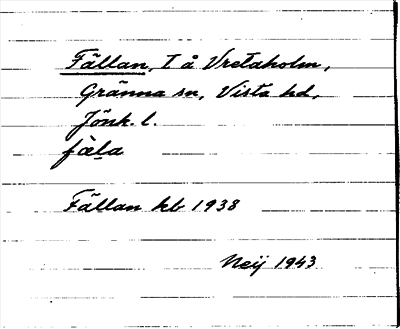 Fällan, T å Vretaholm,
Gränna sn, Vista hd,
Jönk. l.
fàl̥a
Fällan kb 1938
Neij 1943